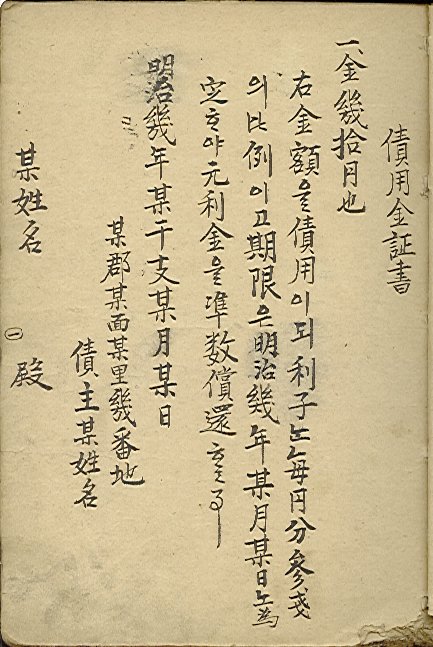 債用金証書
一、金幾拾円也
右金額을債用이되利子는每円分參戔
의比例이고期限은明治幾年某月某日노為
定ᄒᆞ야元利金을準数償還ᄒᆞᆯ事
明治幾年某干支某月某日
某郡某面某里幾番地
債主某姓名
某姓名 ㊀ 殿